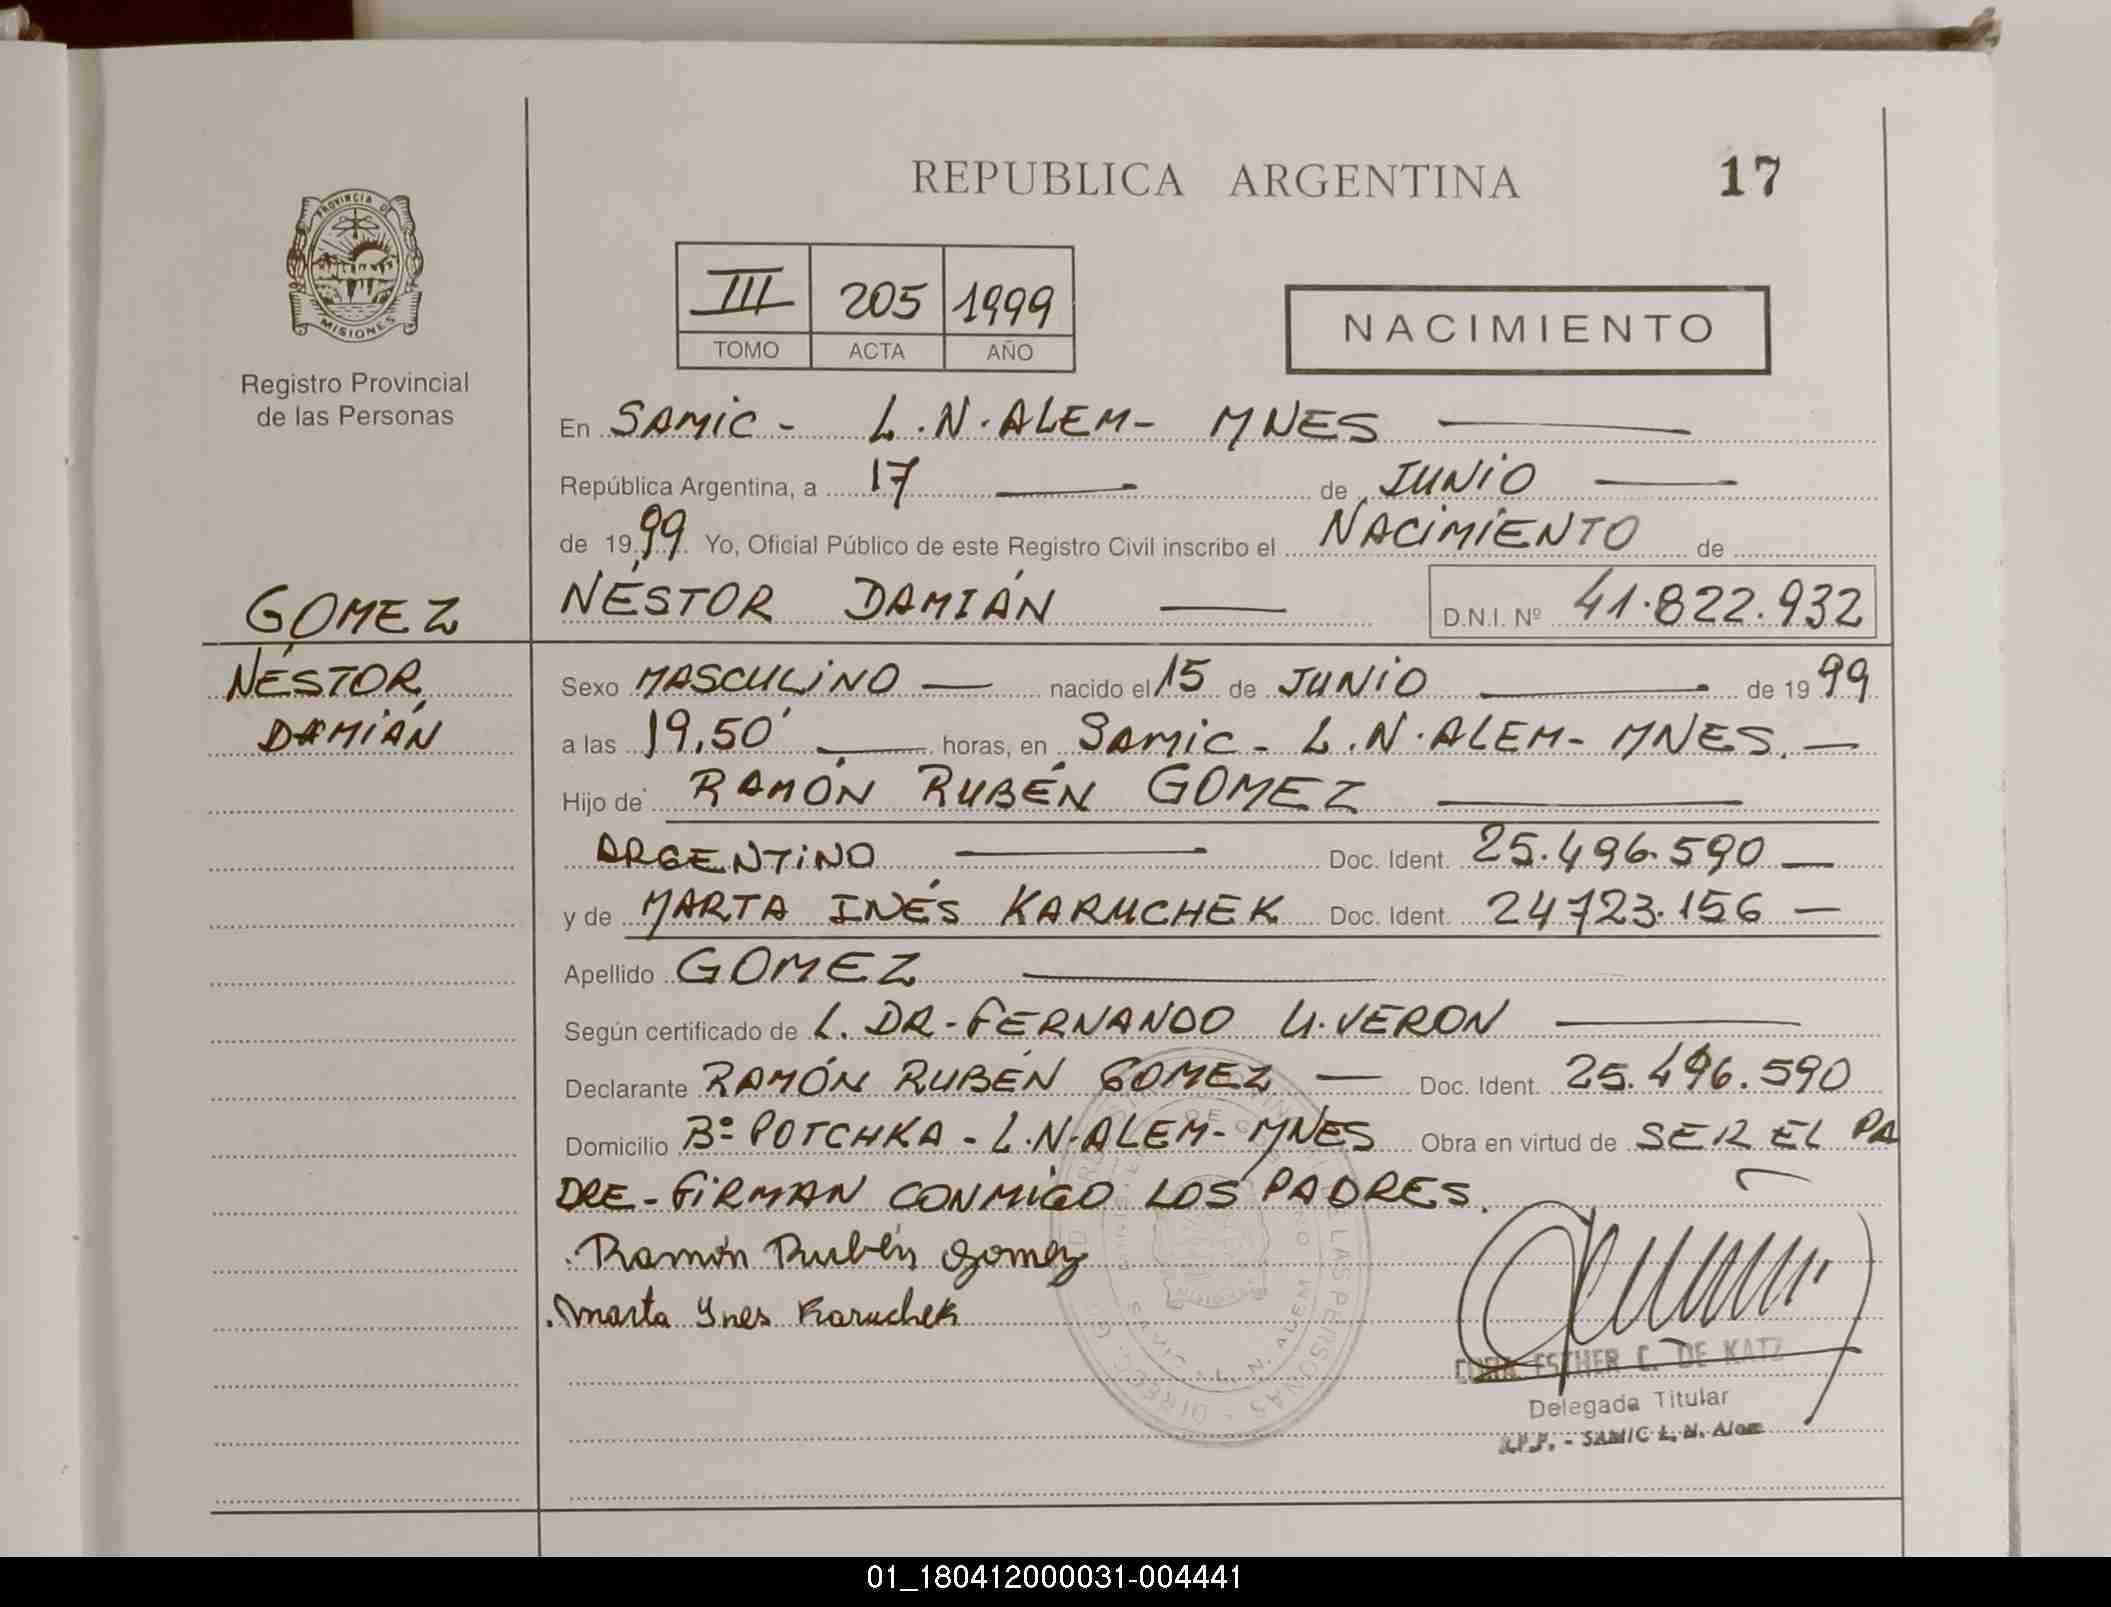 REPUBLICA ARGENTINA
17
PROVINCIA DE
MISIONES
Registro Provincial
de las Personas
III 205 1999
TOMO ACTA AÑO
NACIMIENTO
En SAMIC - L.N.ALEM- MNES
República Argentina, a 17 de JUNIO
de 1999 Yo, Oficial Público de este Registro Civil inscribo el NACIMIENTO de
GOMEZ
NÉSTOR DAMIÁN D.N.I. Nº 41.822.932
NÉSTOR
DAMIÁN
Sexo MASCULINO nacido el 15 de JUNIO de 1999
a las 19,50' horas, en SAMIC - L.N.ALEM- MNES.
Hijo de RAMÓN RUBÉN GOMEZ
ARGENTINO Doc. Ident. 25.496.590
y de MARTA INÉS KARUCHEK Doc. Ident. 24723.156
Apellido GOMEZ
Según certificado de L. DR- FERNANDO U. VERON
Declarante RAMÓN RUBÉN GOMEZ Doc. Ident. 25.496.590
Domicilio Bº POTCHKA - L.N.ALEM- MNES Obra en virtud de SER EL PA
DRE - FIRMAN CONMIGO LOS PADRES.
Ramón Rubén Gomez
Marta Ynes Karuchek
ESTHER C. DE KATZ
Delegada Titular
R.P.P. - SAMIC L. N. Alem
LAS PERSONAS - DIREC. G
SAMIC - L. N. ALEM
01_180412000031-004441